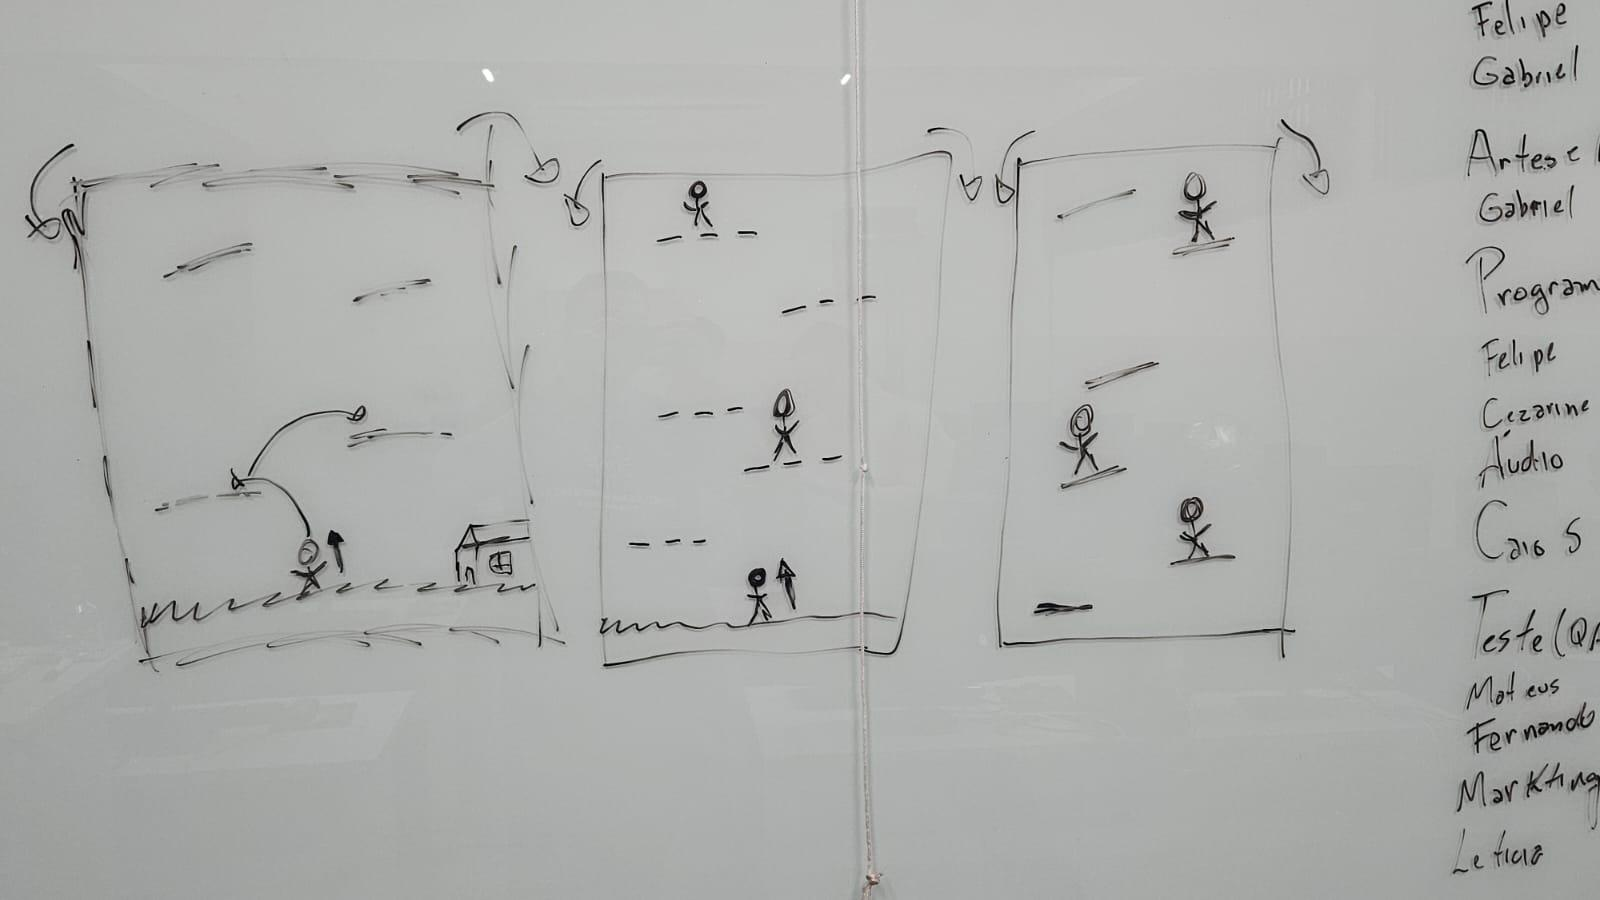 Felipe
Gabriel
Artes e
Gabriel
Program
Felipe
Cezarine
Áudio
Caio S
Teste (QA
Mateus
Fernando
Markting
Leticia